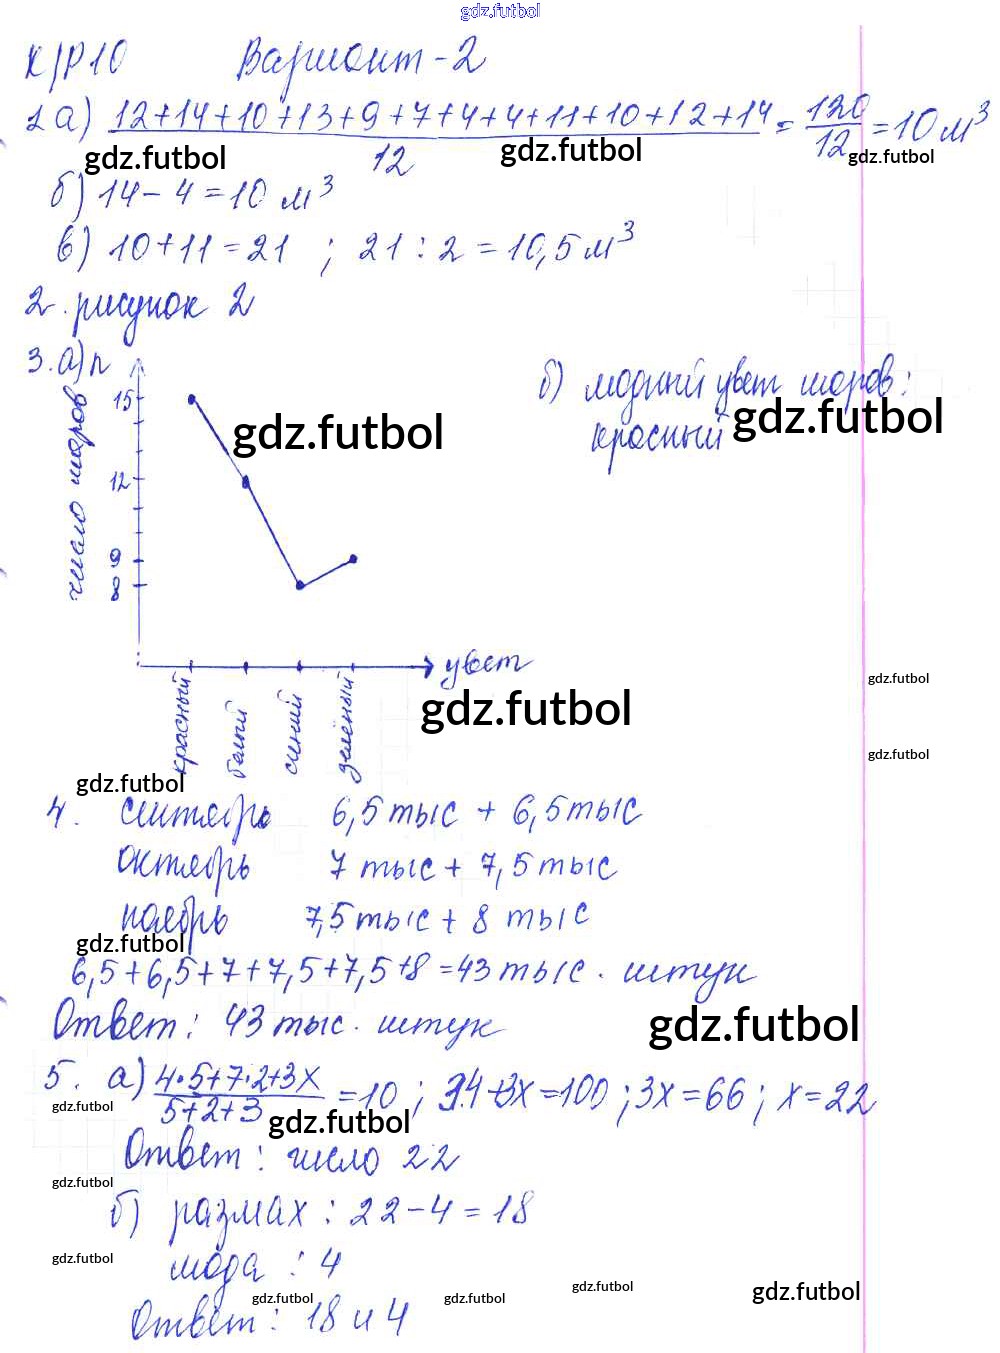 gdz.futbol
К/Р10 Вариант-2
1 а) 12+14+10+13+9+7+4+4+11+10+12+14 / 12 = 120/12 = 10 м³
gdz.futbol gdz.futbol gdz.futbol
б) 14-4=10 м³
в) 10+11=21 ; 21:2=10,5 м³
2. рисунок 2
3. а) n
число шаров
15
12
9
8
б) модный цвет шаров:
красный
gdz.futbol gdz.futbol
цвет
красный
белый
синий
зелёный
gdz.futbol
gdz.futbol
gdz.futbol
gdz.futbol
4. сентябрь 6,5 тыс + 6,5 тыс
октябрь 7 тыс + 7,5 тыс
ноябрь 7,5 тыс + 8 тыс
gdz.futbol
6,5+6,5+7+7,5+7,5+8=43 тыс. штук
Ответ: 43 тыс. штук
gdz.futbol
5. а) 4·5+7·2+3x / 5+2+3 = 10 ; 34+3x=100 ; 3x=66 ; x=22
gdz.futbol gdz.futbol
Ответ: число 22
gdz.futbol
б) размах: 22-4=18
мода: 4
gdz.futbol gdz.futbol gdz.futbol gdz.futbol gdz.futbol
Ответ: 18 и 4